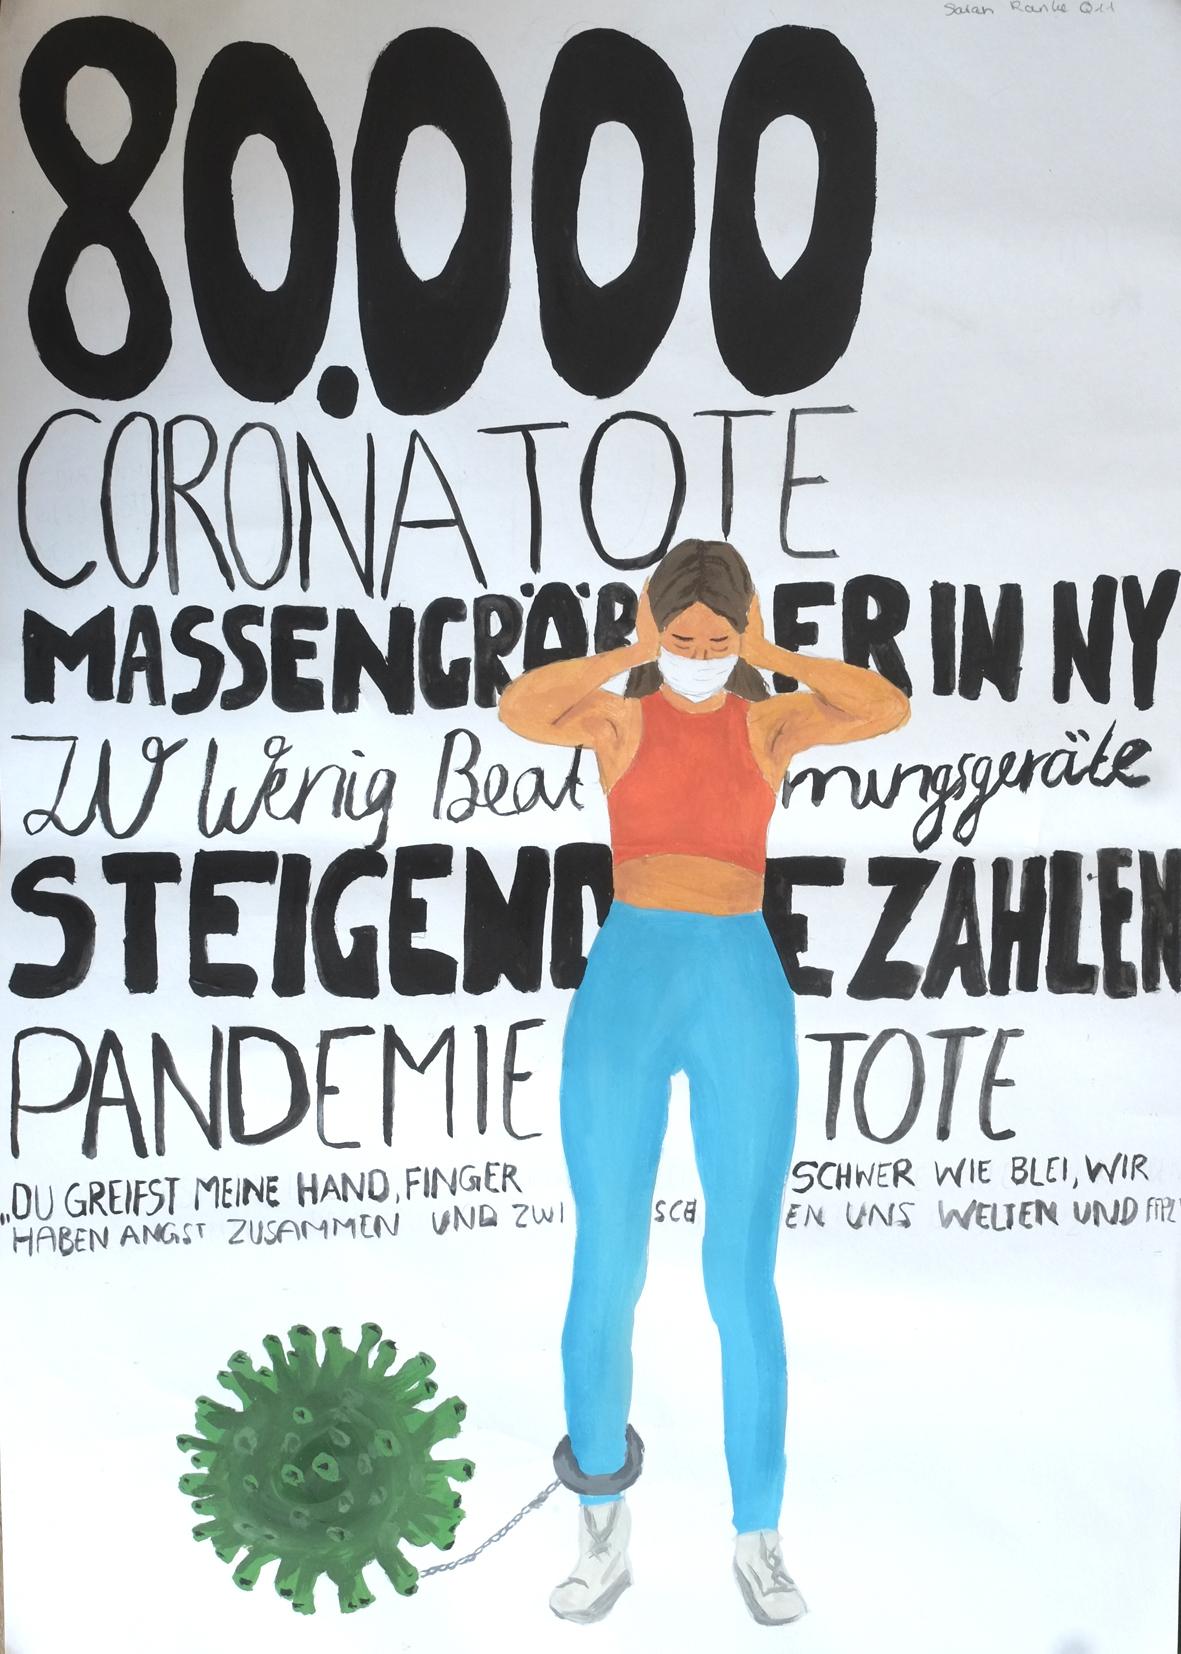 Sarah Ranke Q11
80.000
CORONA TOTE
MASSENGRÄBER IN NY
ZU Wenig Beatmungsgeräte
STEIGENDE ZAHLEN
PANDEMIE TOTE
„DU GREIFST MEINE HAND, FINGER SCHWER WIE BLEI, WIR
HABEN ANGST ZUSAMMEN UND ZWISCHEN UNS WELTEN UND FFP2"